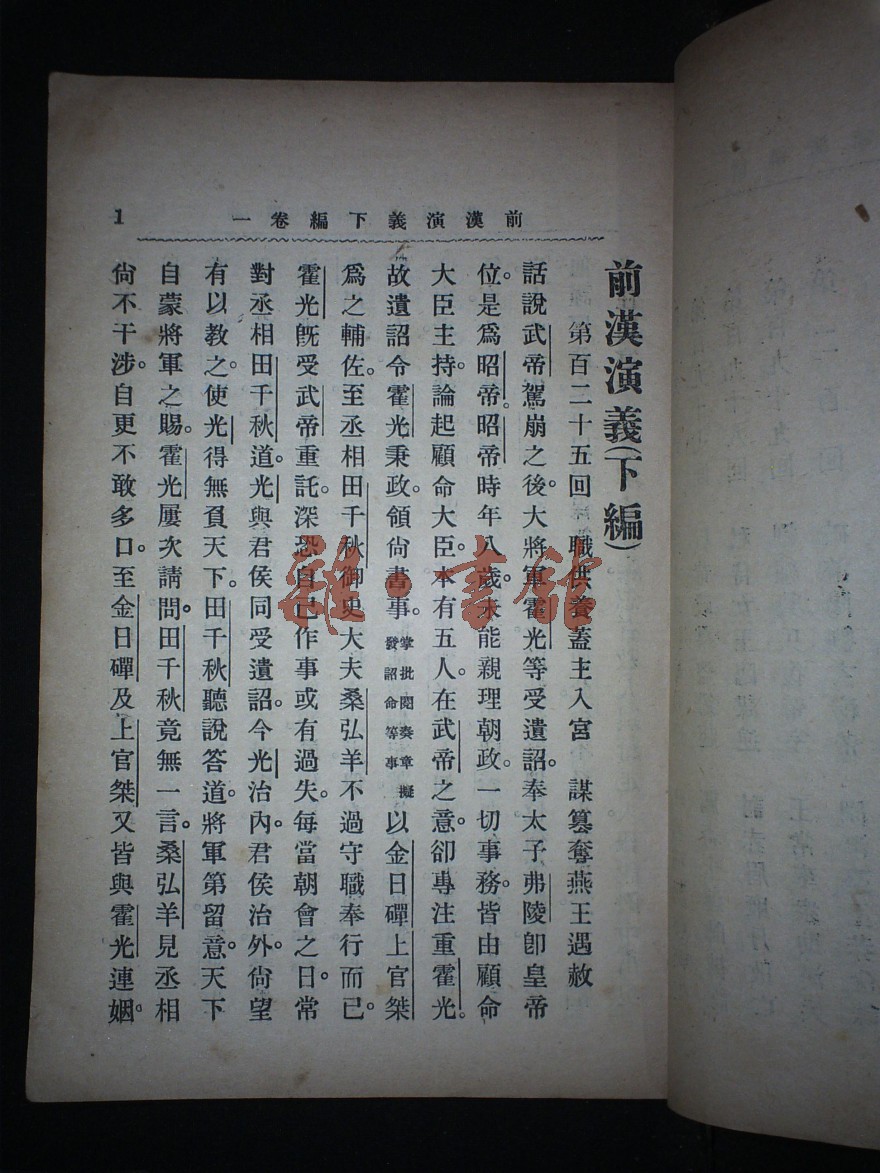 前漢演義下編卷一
1
前漢演義(下編)
第百二十五回 職供養蓋主入宮 謀篡奪燕王遇赦
話說武帝駕崩之後。大將軍霍光等受遺詔。奉太子弗陵卽皇帝
位。是爲昭帝。昭帝時年八歲。未能親理朝政。一切事務。皆由顧命
大臣主持。論起顧命大臣。本有五人。在武帝之意。卻專注重霍光。
故遺詔令霍光秉政。領尙書事。掌批閱奏章擬發詔命等事以金日磾上官桀
爲之輔佐。至丞相田千秋御史大夫桑弘羊不過守職奉行而已。
霍光旣受武帝重託。深恐自己作事或有過失。每當朝會之日。常
對丞相田千秋道。光與君侯同受遺詔。今光治內。君侯治外。尙望
有以教之。使光得無負天下。田千秋聽說答道。將軍第留意。天下
自蒙將軍之賜。霍光屢次請問。田千秋竟無一言。桑弘羊見丞相
尙不干涉。自更不敢多口。至金日磾及上官桀又皆與霍光連姻。
雜·書館